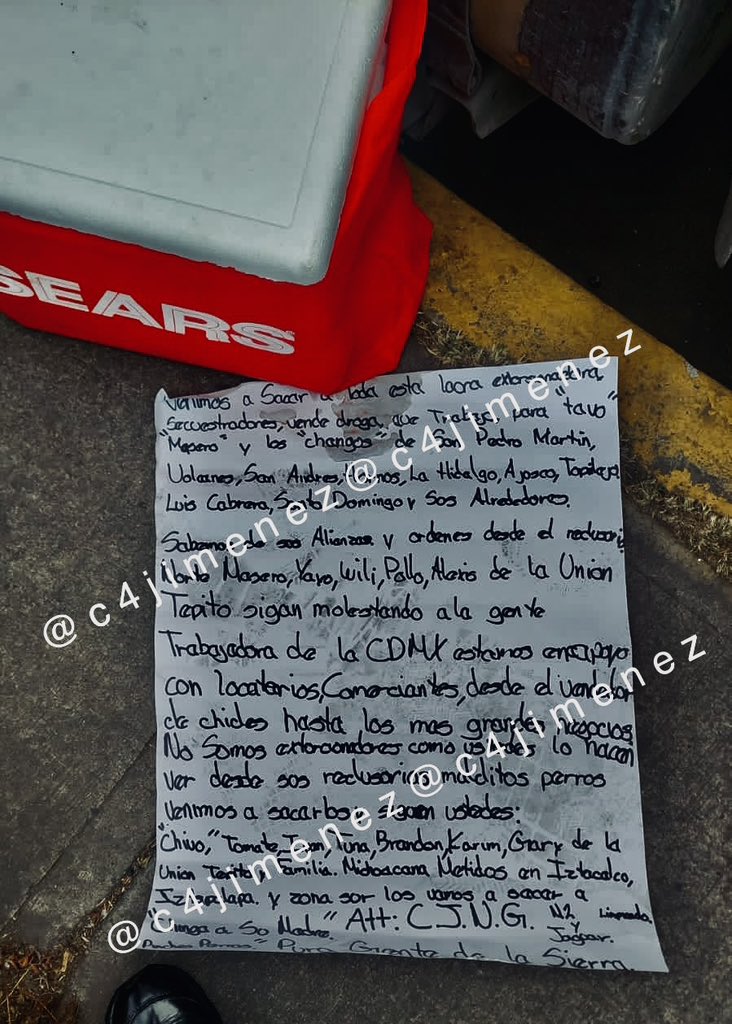 SEARS
Venimos a Sacar a toda esta lacra extorsionadora,
secuestradores, vende droga, que Trabaja para "tavo"
"Mesero" y los "changos" de San Pedro Martin,
Volcanes, San Andres, Hornos, La Hidalgo, Ajosco, Topilejo
Luis Cabrera, Santo Domingo y Sos Alrededores.
Sabemos de sos Alianzas y ordenes desde el reclusorio
Norte Masero, Yayo, Wili, Pollo, Alexis de la Union
Tepito sigan molestando a la gente
Trabajadora de la CDMX estamos en apoyo
con locatarios, Comerciantes, desde el vendedor
de chicles hasta los mas grandes negocios
No Somos extorcionadores como ustedes lo hacen
ver desde sos reclusorios malditos perros
venimos a sacarlos y siguen ustedes:
"Chivo," Tomate, Ivan, Tuna, Brandon, Karum, Gary de la
Union Tepito y Familia Michoacana Metidos en Iztacalco,
Iztapalapa. y zona sor los vamos a sacar a
"Chinga a So Madre." Att: C.J.N.G. M2 Lineada.
y Jaguar.
Perros" Pura Gente de la Sierra.
@c4jimenez@c4jimenez
@c4jimenez@c4jimenez